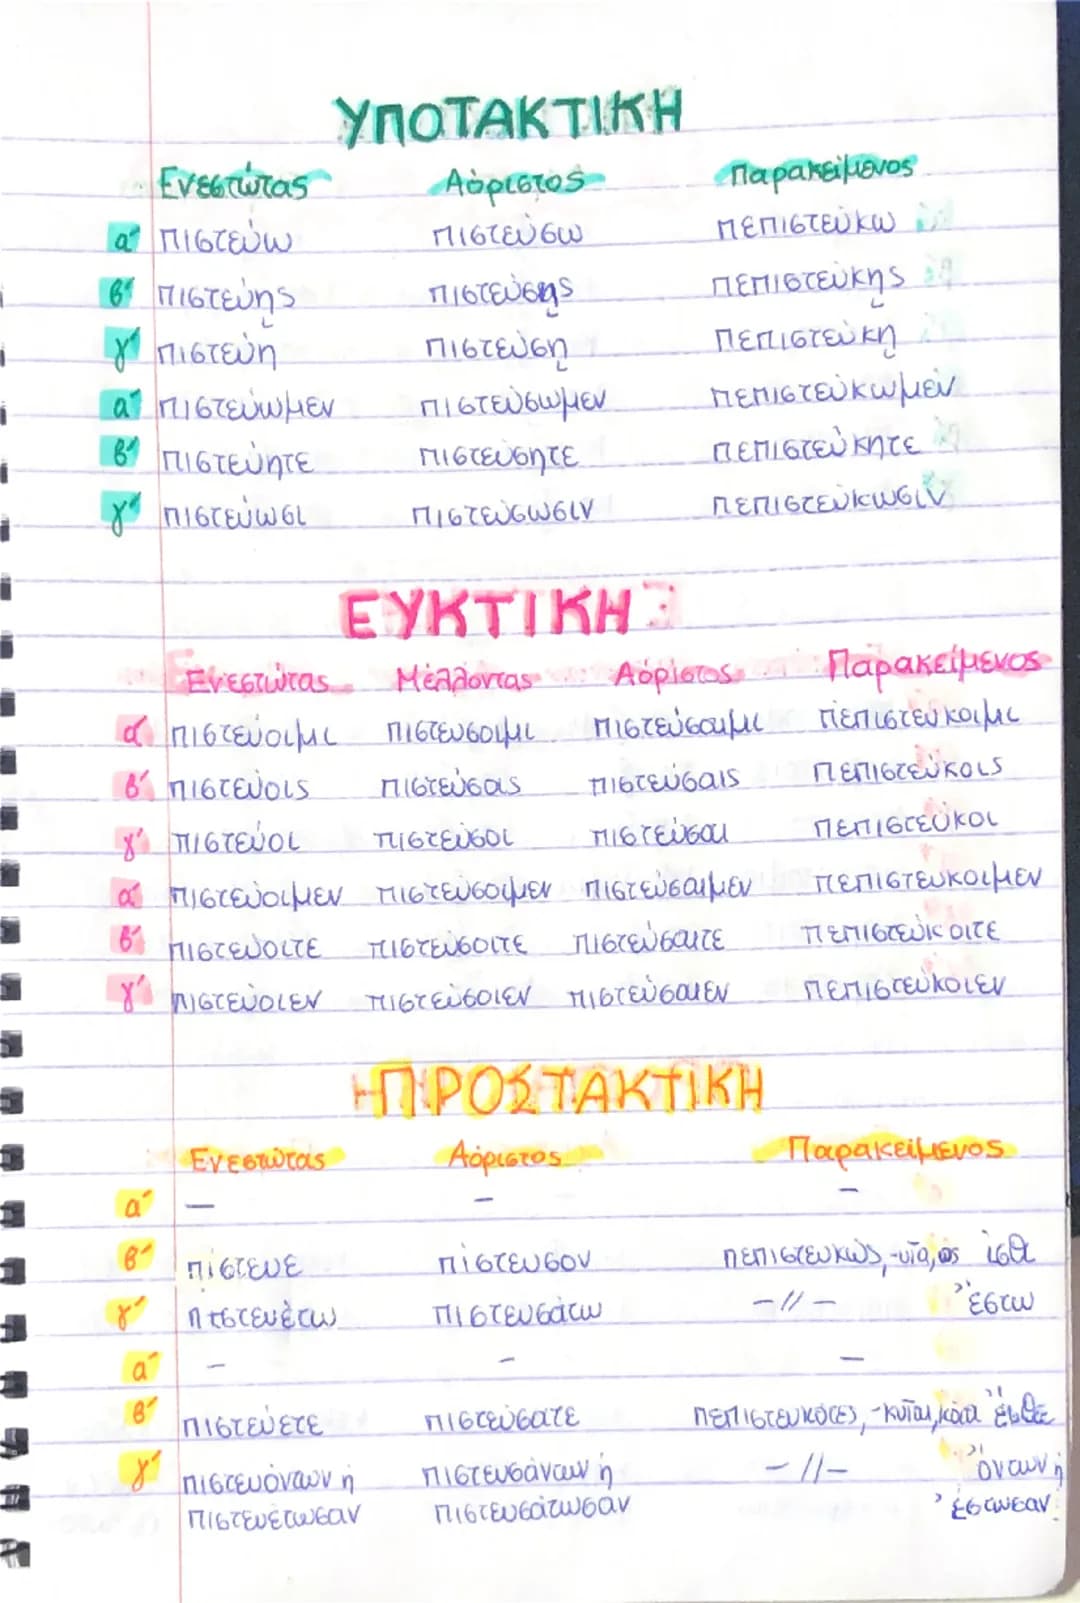 ΥΠΟΤΑΚΤΙΚΗ
Ενεστώτας Αόριστος Παρακείμενος
α΄ πιστεύω πιστεύσω πεπιστεύκω
β΄ πιστεύῃς πιστεύσῃς πεπιστεύκῃς
γ΄ πιστεύῃ πιστεύσῃ πεπιστεύκῃ
α΄ πιστεύωμεν πιστεύσωμεν πεπιστεύκωμεν
β΄ πιστεύητε πιστεύσητε πεπιστεύκητε
γ΄ πιστεύωσι πιστεύσωσιν πεπιστεύκωσιν
ΕΥΚΤΙΚΗ
Ενεστώτας Μέλλοντας Αόριστος Παρακείμενος
α΄ πιστεύοιμι πιστεύσοιμι πιστεύσαιμι πεπιστεύκοιμι
β΄ πιστεύοις πιστεύσοις πιστεύσαις πεπιστεύκοις
γ΄ πιστεύοι πιστεύσοι πιστεύσαι πεπιστεύκοι
α΄ πιστεύοιμεν πιστεύσοιμεν πιστεύσαιμεν πεπιστεύκοιμεν
β΄ πιστεύοιτε πιστεύσοιτε πιστεύσαιτε πεπιστεύκοιτε
γ΄ πιστεύοιεν πιστεύσοιεν πιστεύσαιεν πεπιστεύκοιεν
ΠΡΟΣΤΑΚΤΙΚΗ
Ενεστώτας Αόριστος Παρακείμενος
α΄ – – –
β΄ πίστευε πίστευσον πεπιστευκώς, -υῖα, ος ἴσθι
γ΄ πιστευέτω πιστευσάτω –//– ἔστω
α΄ – – –
β΄ πιστεύετε πιστεύσατε πεπιστευκότες, -κυῖαι, κότα ἔσθε
γ΄ πιστευόντων ή πιστευσάντων ή –//– ὄντων ή
πιστευέτωσαν πιστευσάτωσαν ἔστωσαν